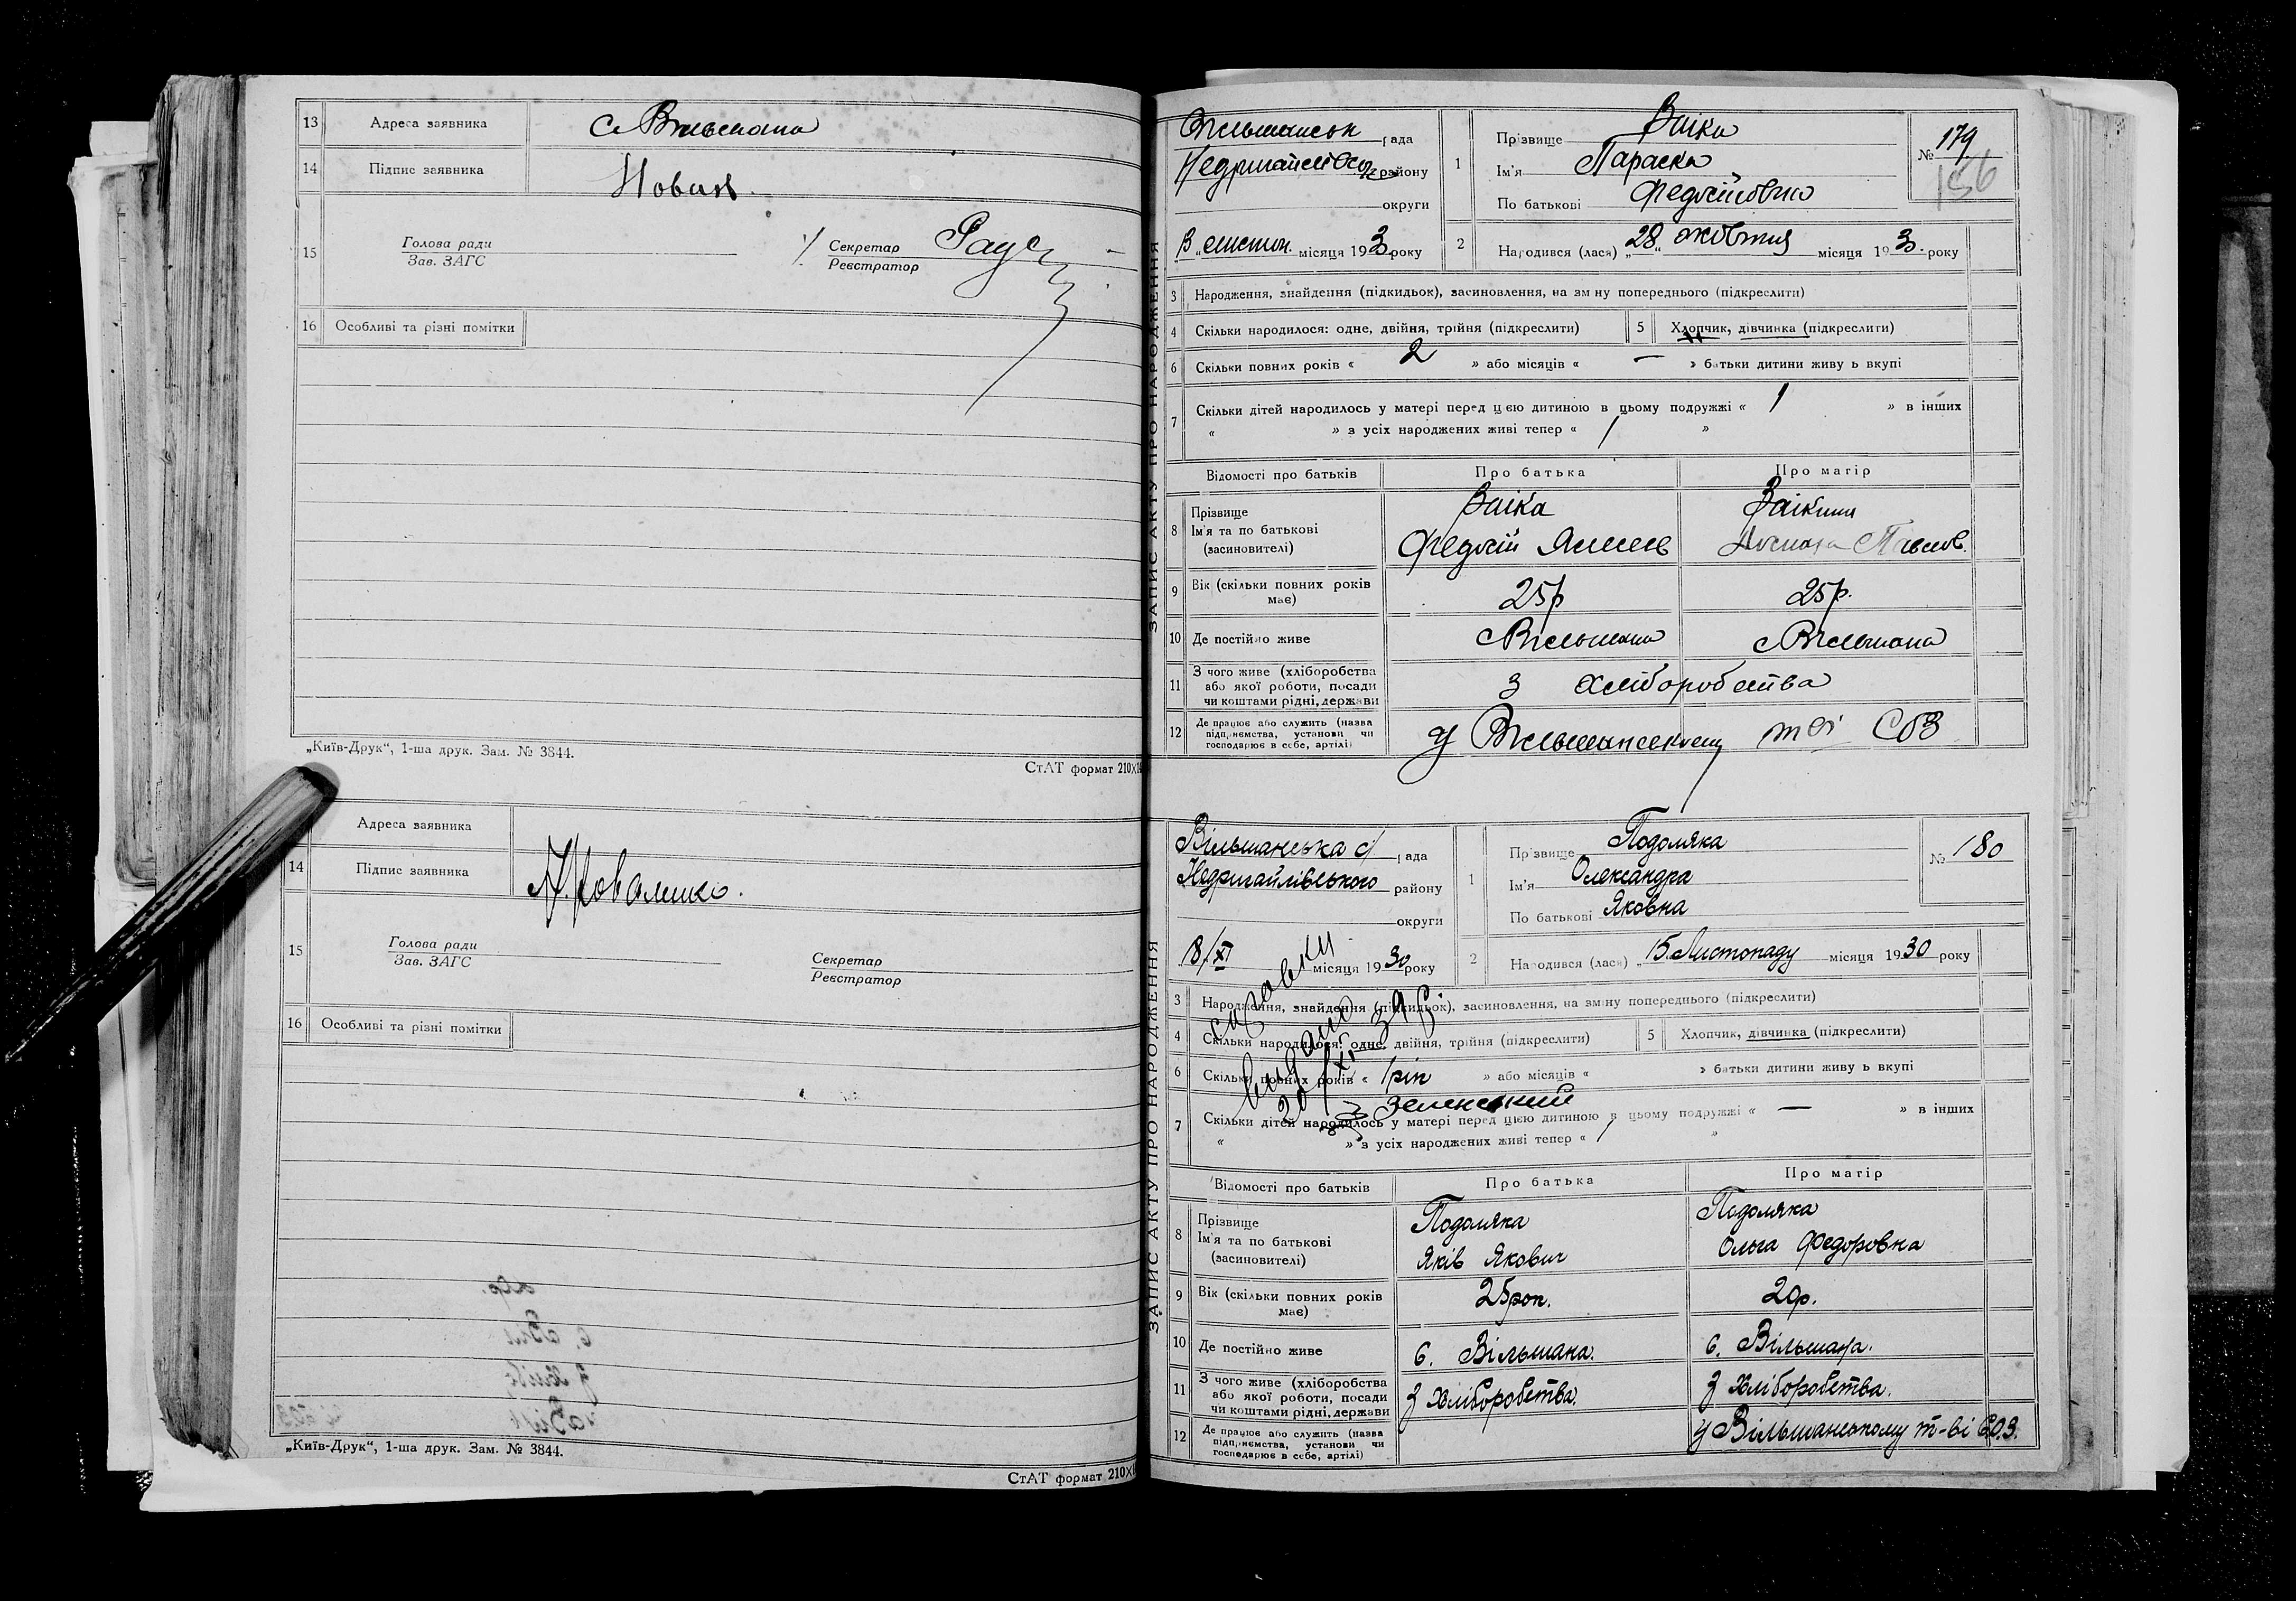 13 Адреса заявника с Вільшана
14 Підпис заявника
15 Голова ради
Зав. ЗАГС
Секретар
Реєстратор
16 Особливі та різні помітки
„Київ-Друк“, 1-ша друк. Зам. № 3844.
СтАТ формат 210X
Адреса заявника
14 Підпис заявника
15 Голова ради
Зав. ЗАГС
Секретар
Реєстратор
16 Особливі та різні помітки
„Київ-Друк“, 1-ша друк. Зам. № 3844.
СтАТ формат 210X
ЗАПИС АКТУ ПРО НАРОДЖЕННЯ
Вільшанськ рада
району
округи
місяця 193 року
1 Прізвище Заіка
Ім'я Параска
По батькові
№ 179
156
2 Народився (лася) „28“ жовтня місяця 193 року
3 Народження, знайдення (підкидьок), засиновлення, на зміну попереднього (підкреслити)
4 Скільки народилося: одне, двійня, трійня (підкреслити)
5 Хлопчик, дівчинка (підкреслити)
6 Скільки повних років « 2 » або місяців « — » батьки дитини живуть вкупі
7 Скільки дітей народилось у матері перед цією дитиною в цьому подружжі « 1 » в інших
« » з усіх народжених живі тепер « 1 »
Відомості про батьків Про батька Про матір
8 Прізвище
Ім'я та по батькові
(засиновителі)
Заіка
Федосій
Заікина
9 Вік (скільки повних років має) 25р 25р.
10 Де постійно живе с Вільшана с Вільшана
11 З чого живе (хліборобства
або якої роботи, посади
чи коштами рідні, держави
З хліборобства
12 Де працює або служить (назва
підприємства, установи чи
господарює в себе, артілі)
у Вільшанському т-ві СОЗ
ЗАПИС АКТУ ПРО НАРОДЖЕННЯ
Вільшанська с/ рада
Недригайлівського району
округи
18/XI місяця 1930 року
1 Прізвище Подоляка
Ім'я Олександра
По батькові Яковна
№ 180
2 Народився (лася) „15 Листопаду місяця 1930 року
3 Народження, знайдення (підкидьок), засиновлення, на зміну попереднього (підкреслити)
4 Скільки народилося: одне, двійня, трійня (підкреслити)
5 Хлопчик, дівчинка (підкреслити)
6 Скільки повних років « 1 рік » або місяців « » батьки дитини живуть вкупі
7 Скільки дітей народилось у матері перед цією дитиною в цьому подружжі « — » в інших
« » з усіх народжених живі тепер « 1 »
Відомості про батьків Про батька Про матір
8 Прізвище
Ім'я та по батькові
(засиновителі)
Подоляка
Яків Якович
Подоляка
Ольга Федоровна
9 Вік (скільки повних років має) 25рок. 20р.
10 Де постійно живе с. Вільшана. с. Вільшана.
11 З чого живе (хліборобства
або якої роботи, посади
чи коштами рідні, держави
З хліборобства. З хліборобства.
12 Де працює або служить (назва
підприємства, установи чи
господарює в себе, артілі)
у Вільшанському т-ві СОЗ.